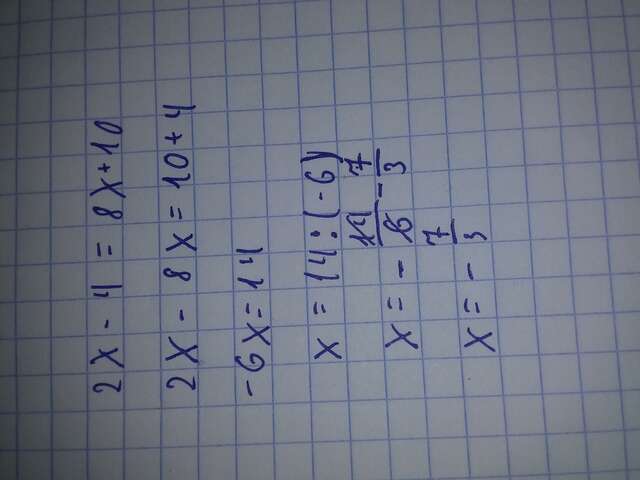 2x - 4 = 8x+10
2x - 8x = 10+4
-6x=14
x = 14:(-6)
x = - 14/6 - 7/3
x = - 7/3